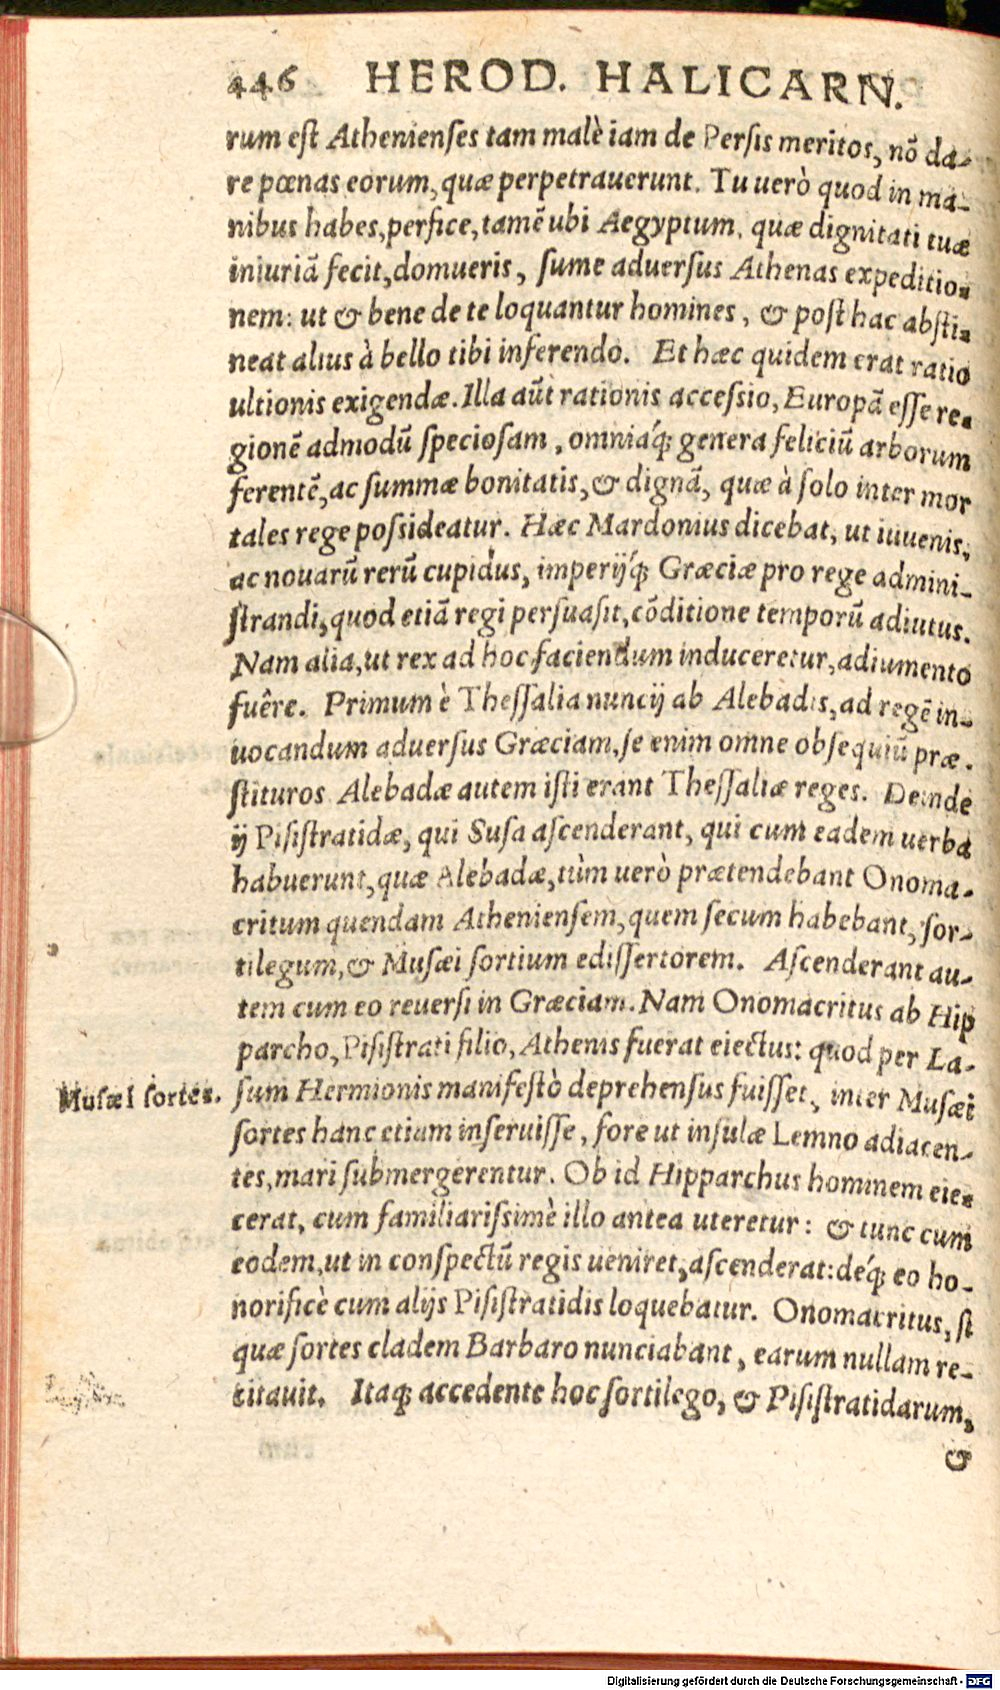 446 HEROD. HALICARN.
rum est Athenienses tam malè iam de Persis meritos, nõ da-
re pœnas eorum, quæ perpetrauerunt. Tu uerò quod in ma-
nibus habes, perfice, tamẽ ubi Aegyptum, quæ dignitati tuæ
iniuriã fecit, domueris, sume aduersus Athenas expeditio-
nem: ut & bene de te loquantur homines, & post hac absti-
neat alius à bello tibi inferendo. Et hæc quidem erat ratio
ultionis exigendæ. Illa aũt rationis accessio, Europã esse re-
gionẽ admodũ speciosam, omniaq́; genera feliciũ arborum
ferentẽ, ac summæ bonitatis, & dignã, quæ à solo inter mor
tales rege possideatur. Hæc Mardonius dicebat, ut iuuenis,
ac nouarũ rerũ cupidus, imperijq́; Græciæ pro rege admini-
strandi, quod etiã regi persuasit, cõditione temporũ adiutus.
Nam alia, ut rex ad hoc faciendum induceretur, adiumento
fuêre. Primum è Thessalia nuncij ab Alebadis, ad regẽ in-
uocandum aduersus Græciam, se enim omne obsequiũ præ-
stituros Alebadæ autem isti erant Thessaliæ reges. Deinde
ij Pisistratidæ, qui Susa ascenderant, qui cum eadem uerba
habuerunt, quæ Alebadæ, tùm uerò prætendebant Onoma-
critum quendam Atheniensem, quem secum habebant, sor-
tilegum, & Musæi sortium edissertorem. Ascenderant au-
tem cum eo reuersi in Græciam. Nam Onomacritus ab Hip
parcho, Pisistrati filio, Athenis fuerat eiectus: quod per La-
Musæi sortes.
sum Hermionis manifestò deprehensus fuisset, inter Musæi
sortes hanc etiam inseruisse, fore ut insulæ Lemno adiacen-
tes, mari submergerentur. Ob id Hipparchus hominem eie-
cerat, cum familiarissimè illo antea uteretur: & tunc cum
eodem, ut in conspectũ regis ueniret, ascenderat: deq́; eo ho-
norificè cum alijs Pisistratidis loquebatur. Onomacritus, si
quæ sortes cladem Barbaro nunciabant, earum nullam re-
citauit. Itaq; accedente hoc sortilego, & Pisistratidarum,
&
Digitalisierung gefördert durch die Deutsche Forschungsgemeinschaft - DFG